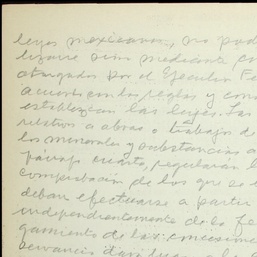 leyes mexicanas, no pod
lizarse sino mediante con
otorgados por el Ejecutivo Fe
acuerdo con las reglas y con
establezcan las leyes. Las
relativas a obras o trabajos de
los minerales y substancias a
párrafo cuarto, regularán l
comprobación de los que se e
deban efectuarse a partir
independientemente de la fe
gamiento de las concesione
servancia dará lugar a la